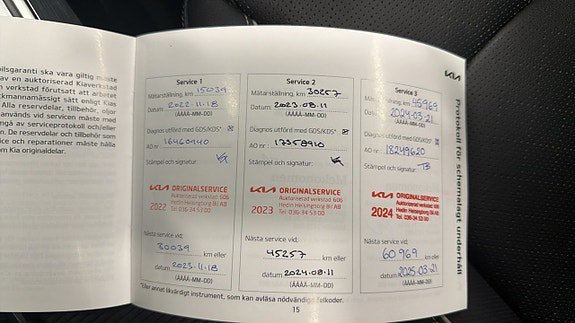 bilsgaranti ska vara giltig måste
av en auktoriserad Kiaverkstad
verkstad förutsatt att arbetet
ckmannamässigt sätt enligt Kias
Alla reservdelar, tillbehör, oljor
används vid servicen måste med
De reservdelar och tillbehör som
ice och reparationer måste hålla
om Kia originaldelar.
Service 1
Mätarställning, km 15039
Datum 2022-11-18
(ÅÅÅÅ-MM-DD)
Diagnos utförd med GDS/KDS*
AO nr 16460940
Stämpel och signatur:
KIA ORIGINALSERVICE
Auktoriserad verkstad 606
Hedin Helsingborg Bil AB
2022 Tel. 036-34 53 00
Nästa service vid:
30039 km eller
datum 2023-11-18
(ÅÅÅÅ-MM-DD)
Service 2
Mätarställning, km 30257
Datum 2023-08-11
(ÅÅÅÅ-MM-DD)
Diagnos utförd med GDS/KDS*
AO nr 17358910
Stämpel och signatur:
KIA ORIGINALSERVICE
Auktoriserad verkstad 606
2023 Hedin Helsingborg Bil AB
Tel. 036-34 53 00
Nästa service vid:
45257 km eller
datum 2024-08-11
(ÅÅÅÅ-MM-DD)
Service 3
Mätarställning, km 45969
Datum 2024-03-21
(ÅÅÅÅ-MM-DD)
Diagnos utförd med GDS/KDS*
AO nr 18249620
Stämpel och signatur: TB
KIA ORIGINALSERVICE
Auktoriserad verkstad 606
2024 Hedin Helsingborg Bil AB
Tel. 036-34 53 00
Nästa service vid:
60969 km eller
datum 2025-03-21
(ÅÅÅÅ-MM-DD)
KIA
Protokoll för schemalagt underhåll
*Eller annat likvärdigt instrument, som kan avläsa nödvändiga felkoder.
15